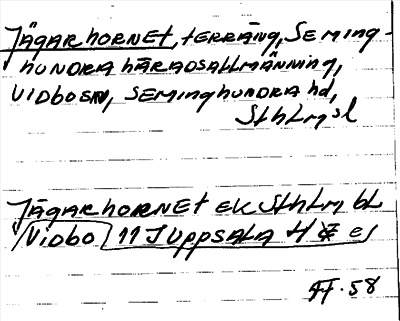 Jägarhornet, terräng, Seming-
hundra häradsallmänning,
Vidbo sn, Seminghundra hd,
Sthlms l
Jägarhornet ek Sthlm bl
/Vidbo/ 11 J Uppsala H e
ff. 58